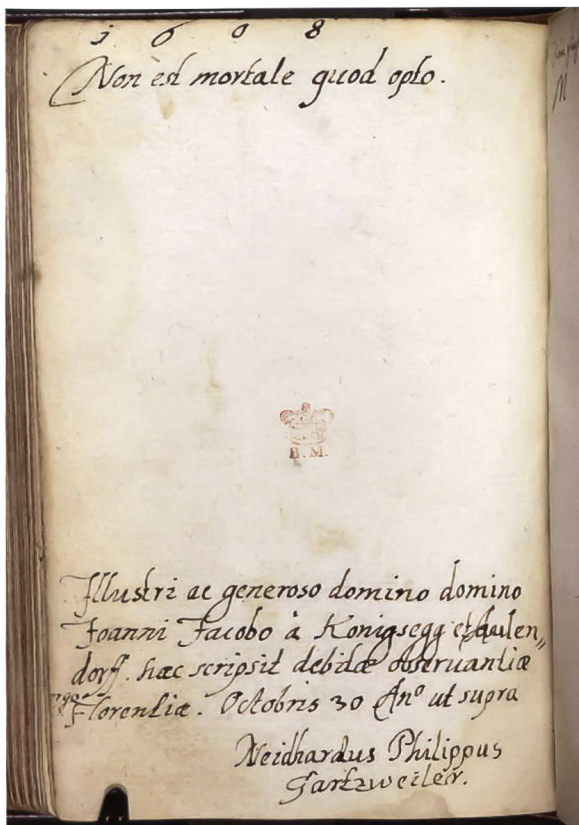 1 6 0 8
Non est mortale quod opto.
B. M.
Illustri ac generoso domino domino
Joanni Jacobo à Konigsegg et Aulen„
dorff. haec scripsit debitae observantiae
ergo Florentiae. Octobris 30 Anº ut supra
Neidhardus Philippus
Gartzweiler.